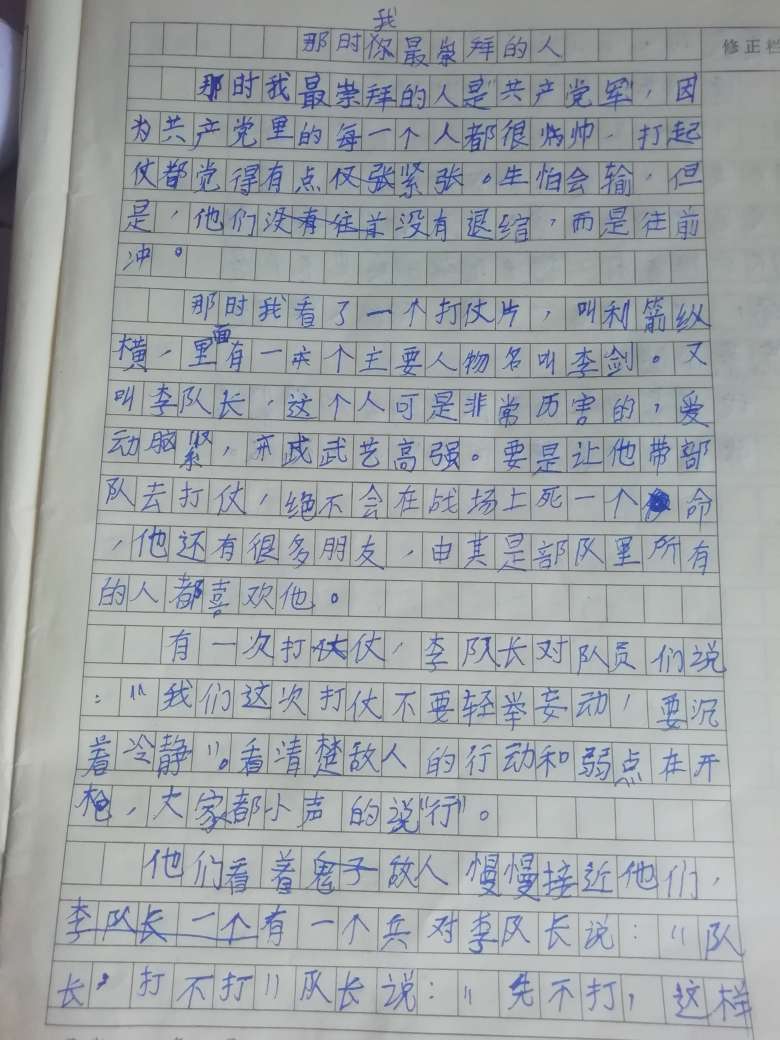 那时我最崇拜的人
修正栏
那时我最崇拜的人是"共产党军",因
为共产党里的每一个人都很帅,打起
仗都觉得有点仅张紧张。生怕会输,但
是,他们没有往前没有退缩,而是往前
冲。
那时我看了一个打仗片,叫利箭纵
横,里面有一本个主要人物名叫李剑。又
叫李队长,这个人可是非常历害的,爱
动脑紧,武艺高强。要是让他带部
队去打仗,绝不会在战场上死一个命
,他还有很多朋友,由其是部队里所有
的人都喜欢他。
有一次打仗,李队长对队员们说
:"我们这次打仗不要轻举妄动,要沉
着冷静"。看清楚敌人的行动和弱点在开
枪,大家都小声的说"行"。
他们看着鬼子敌人慢慢接近他们,
李队长一个有一个兵对李队长说:"队
长,打不打"队长说:"先不打,这样